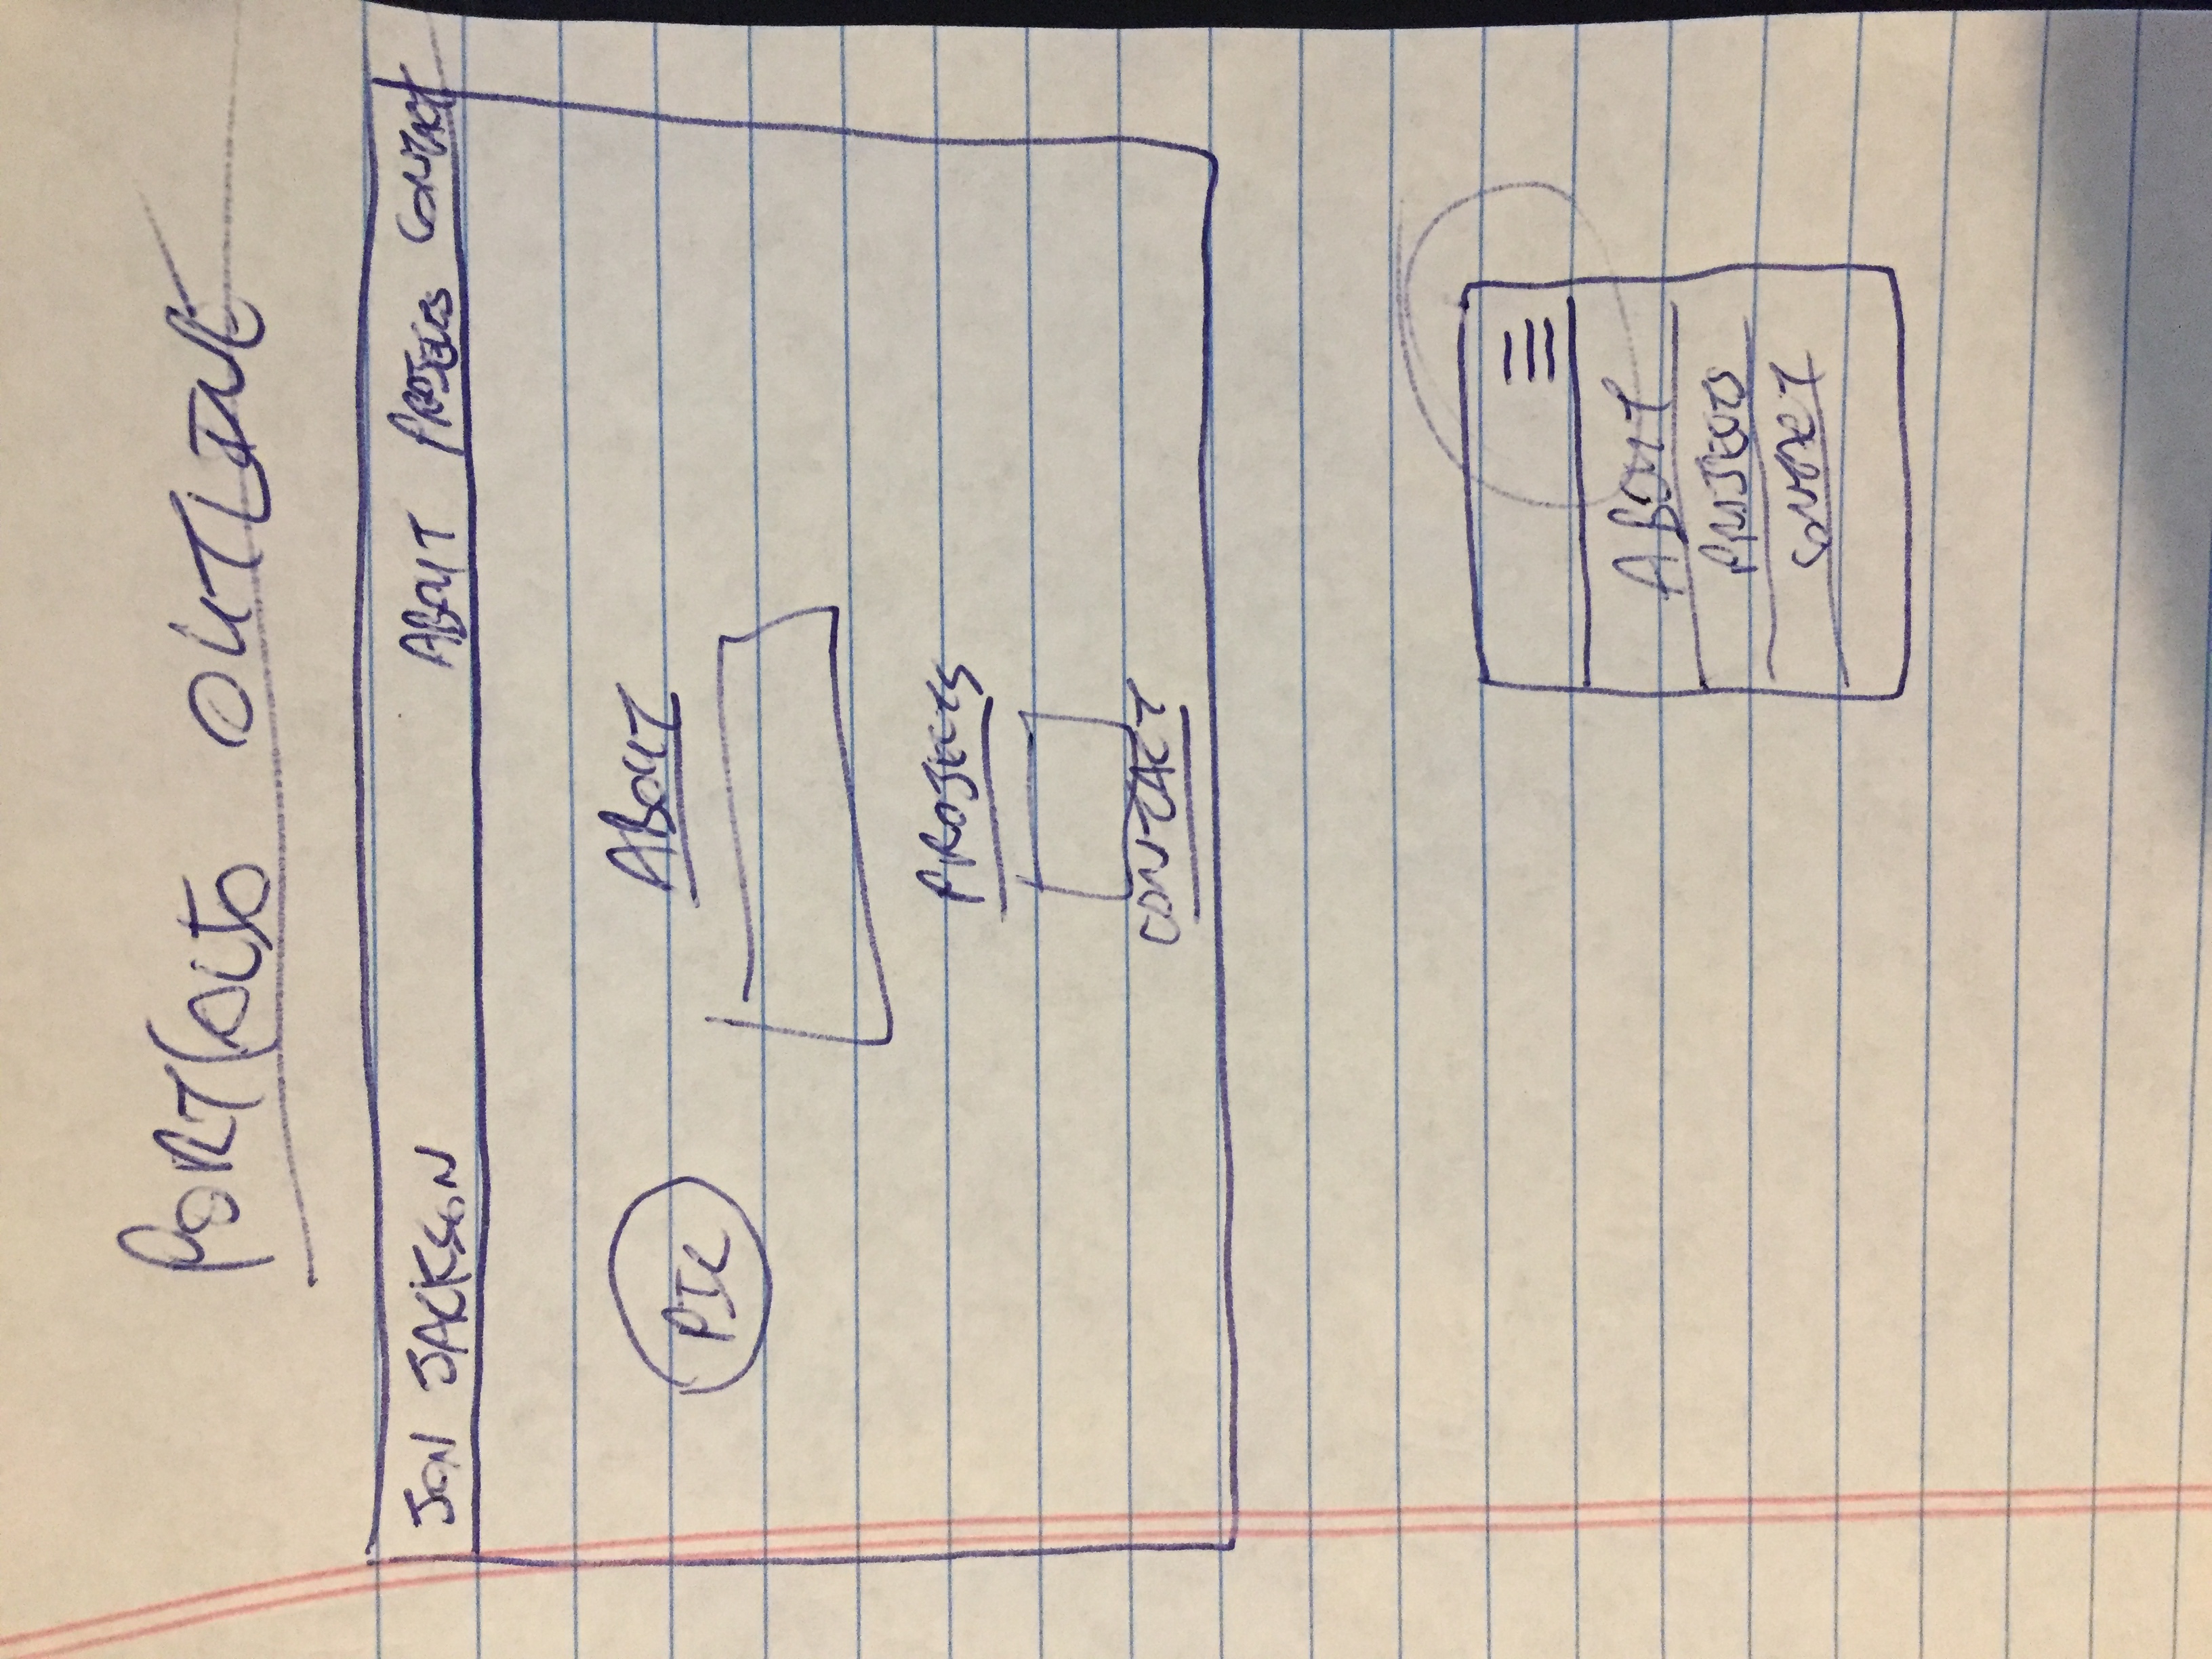 PORTFOLIO OUTLINE
JON JACKSON ABOUT PROJECTS CONTACT
ABOUT
PIC
PROJECTS
CONTACT
ABOUT
PROJECTS
CONTACT